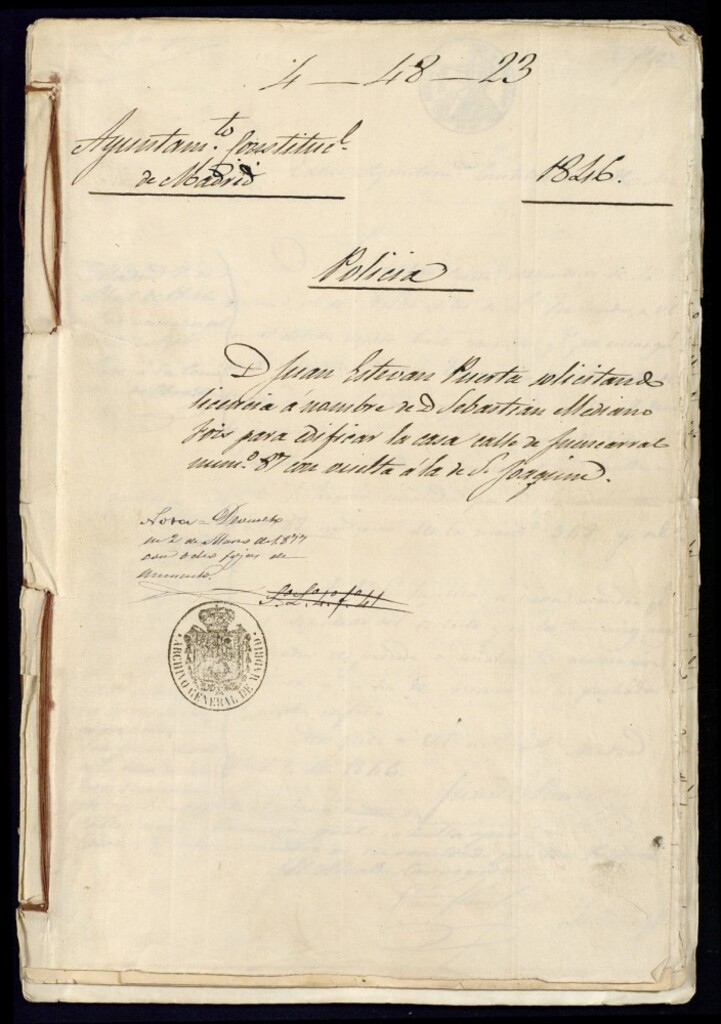 4-48-23
Ayuntam.to Constitucl.
de Madrid
1846.
Policia
D Juan Estevan Puerta solicitando
licencia á nombre de D Sebastian Mediano
para edificar la casa calle de Fuencarral
num.o 87 con vuelta á la de S. Joaquin.
Nota = Devuelto
en 2 de Marzo de 1877
con ocho fojas de
aumento.
ARCHIVO GENERAL DE MADRID